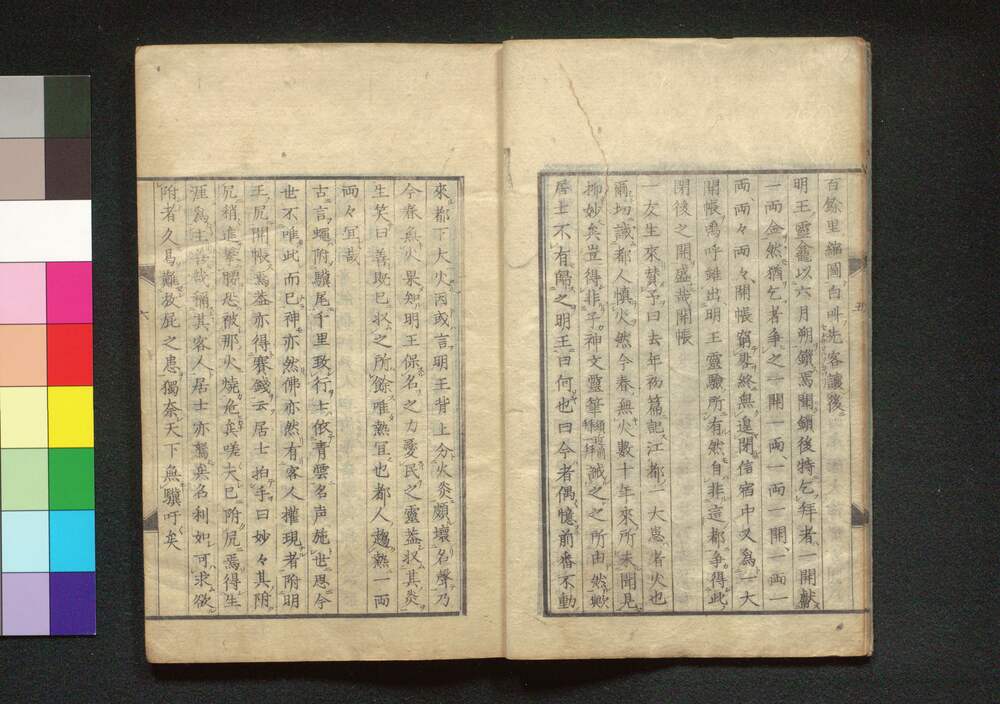 百餘里縮圖白册先客讓後
明王靈龕以六月朔鎖焉關鎖後特乞拜者一開獻
一兩金然猶乞者爭之一開一兩、一兩一開、一兩一
兩兩々兩々開帳窮哉終無遑閉信宿中又爲一大
開帳焉呼雖出明王靈驗所有然自非這都爭得此
閉後之開盛哉開帳
一友生來贊予曰去年初篇記江都一大患者火也
爾切誡都人慎火然今春無火數十年來所未聞見
抑妙矣豈得非子神文靈筆誡之之所由然歟
居士不有歸之明王曰何也曰今者偶憶前番不動
來都下大火因或言明王背上分火炎頗壞名聲乃
今春無火果知明王保名之力愛民之靈蓋収其炎
生笑曰善既已収之所餘唯熱宜也都人趨熱一兩
兩々宜哉
古言蠅附驥尾千里致行士依青雲名声施世思今
世不唯此而已神亦然佛亦然有客人權現者附明
王尻開帳焉蓋亦得賽錢云居士拍手曰妙々其附
尻稍進攀腰恐被那火燒危矣嗟夫已附尻焉得生
涯爲主善哉稱其客人居士亦鶩矣名利如可求欲
附者久易難放屁之患獨奈天下無驥吁矣
五
六